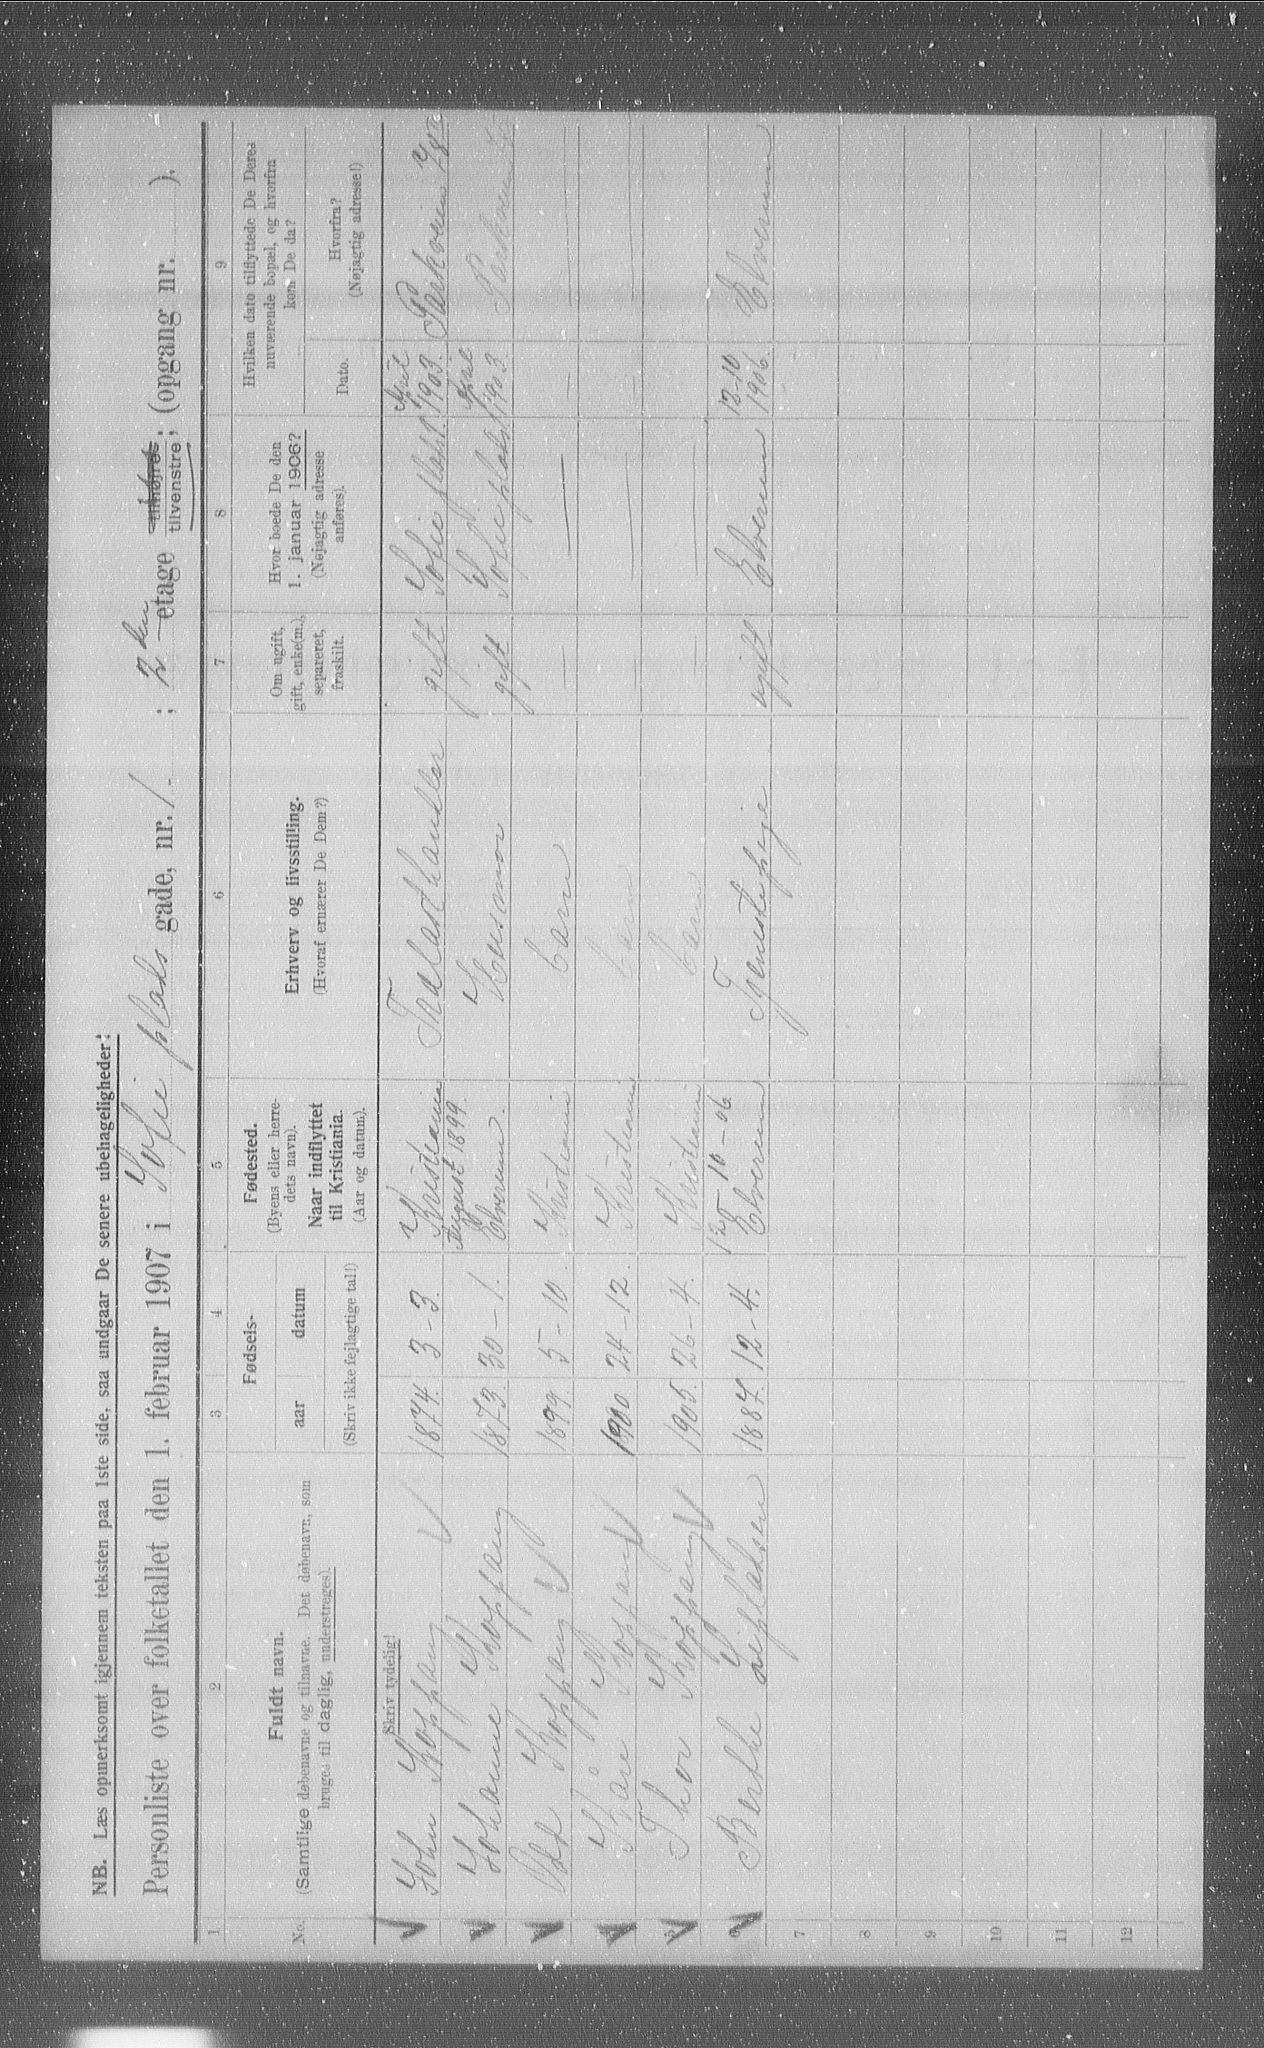 NB. Læs opmerksomt igjennem teksten paa 1ste side, saa undgaar De senere ubehageligheder!
Personliste over folketallet den 1. februar 1907 i Sofie plads gade, nr. 1 - ; 2den etage tilhøjre tilvenstre ; (opgang nr. ).
1 2 3 4 5 6 7 8 9
No.
Fuldt navn.
(Samtlige døbenavne og tilnavne. Det døbenavn, som
bruges til daglig, understreges).
Fødsels-
aar datum
(Skriv ikke fejlagtige tal!)
Fødested.
(Byens eller herre-
dets navn).
Naar indflyttet
til Kristiania.
(Aar og datum).
Erhverv og livsstilling.
(Hvoraf ernærer De Dem?)
Om ugift,
gift, enke(m.),
separeret,
fraskilt.
Hvor boede De den
1. januar 1906?
(Nøjagtig adresse
anføres).
Hvilken dato tilflyttede De Deres
nuværende bopæl, og hvorfra
kom De da?
Dato.
Hvorfra?
(Nøjagtig adresse!)
Skriv tydelig!
John Koppang 1874. 3-3. Kristiania Trælasthandler gift Sofie plads 1. 1903.
2 Johanne Koppang 1873. 30-1. August 1899. Elverum. Husmor gift Sofie plads 1 1903
3 Koppang 1899 5-10. Kristiania barn
4 Kåre Koppang 1900 24-12. Kristiania barn
5 Thor Koppang 1905. 26-4. Kristiania barn
6 Berthe 1887. 12-4. 12-10-06 Elverum Tjenestepige ugift Elverum 12-10 1906. Elverum
7
8
9
10
11
12